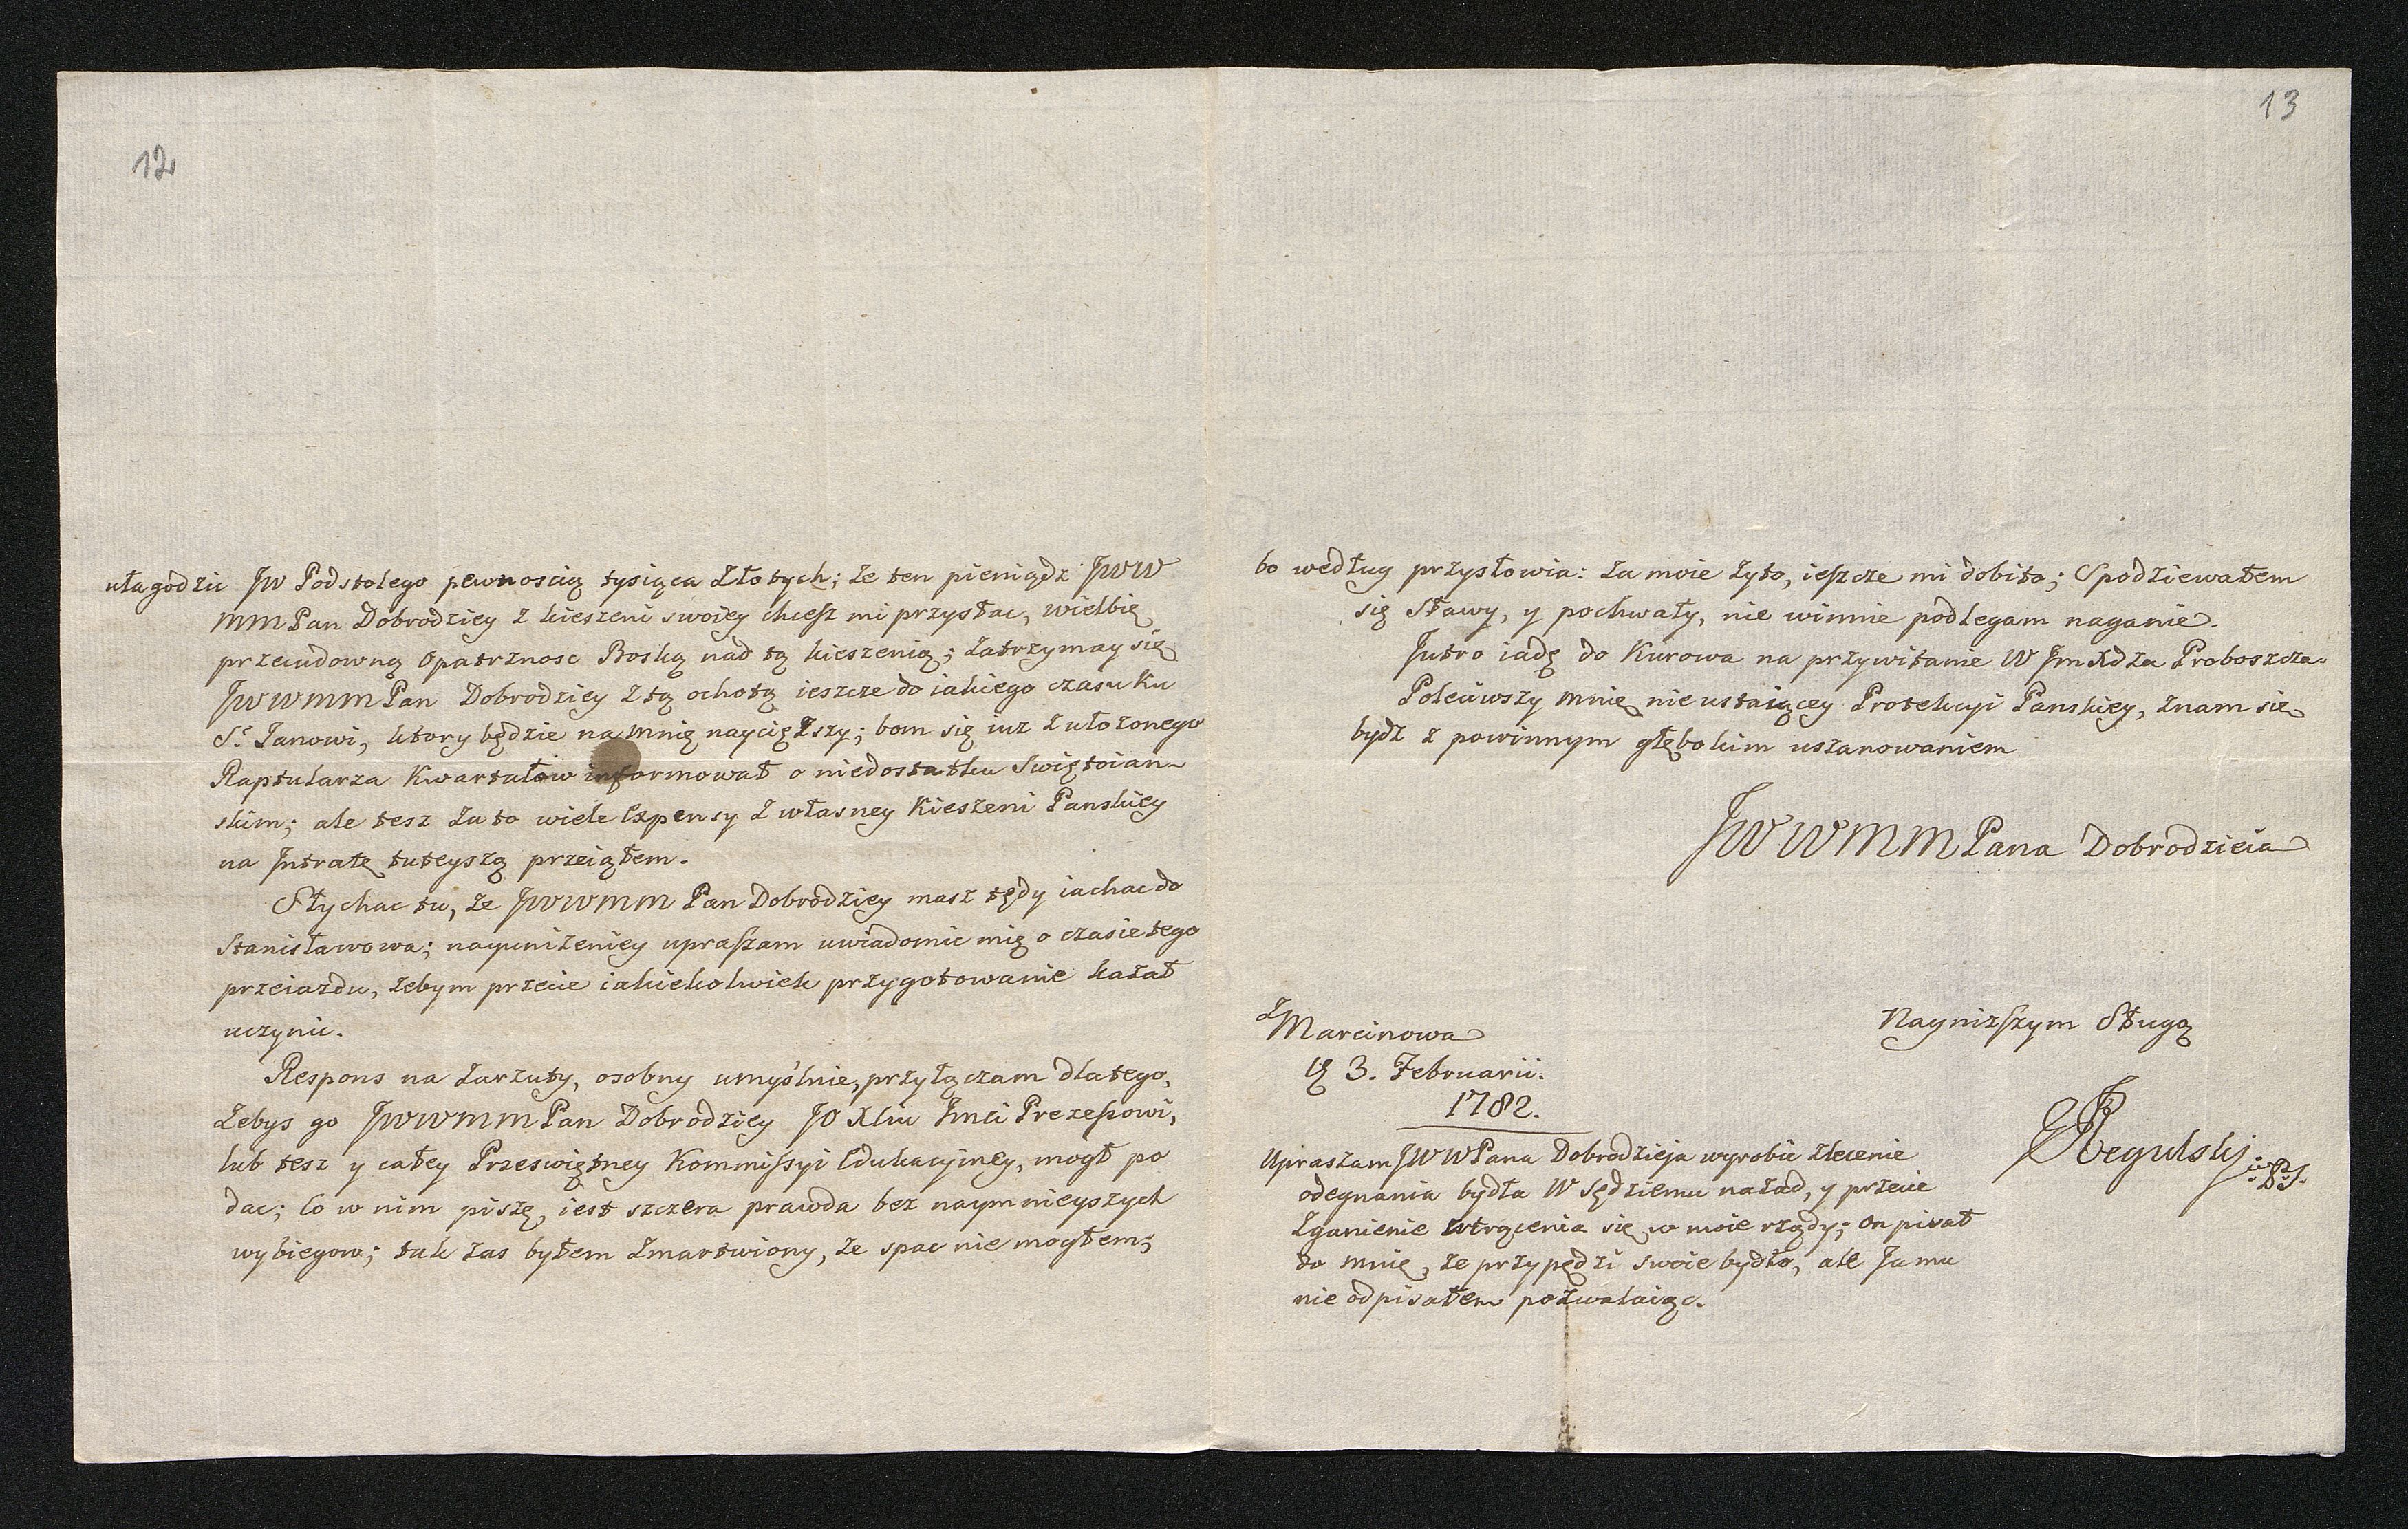 12
ułagodzic JW Podstolego pewnoscią tysiąca Złotych; że ten pieniądz JWW
MM Pan Dobrodziey z kieszeni swoiey chcesz mi przysłac, wielbię
przecudowną Opatrznosc Boską nad tą kieszenią; Zatrzymay się
JWWMM Pan Dobrodziey z tą ochotą ieszcze do iakiego czasu ku
St Janowi, ktory będzie na mnię naycięższy; bom się iuz z ułożonego
Raptularza Kwartałow informował o niedostatku Swiętoian-
skim; ale tesz za to wiele Expensy z własney Kieszeni Panskiey
na Intratę tuteyszą przeiąłem.
Słychac tu, że JWWMM Pan Dobrodziey masz tędy iachac do
Stanisławowa; nayunizeniey upraszam uwiadomic mię o czasie tego
przeiazdu, zebym przecie iakiekolwiek przygotowanie kazał
uczynic.
Respons na Zarzuty, osobny umyślnie, przyłączam dlatego,
Zebys go JWWMM Pan Dobrodziey JO Xciu Jmci Prezesowi,
lub tesz y całey Przeswiętney Kommissyi Edukacyiney, mogł po
dac; Co w nim piszę, iest szczera prawda bez naymnieyszych
wybiegow; tak zas byłem zmartwiony, że spac nie mogłem;
13
bo według przysłowia: za moie żyto, ieszcze mi dobito; Spodziewałem
się Sławy, y pochwały, nie winnie podlegam naganie.
Jutro iadę do Kurowa na przywitanie W Jm Xdza Proboszcza.
Poleciwszy mnię nieustaiącey Protekcyi Panskiey, znam się
bydz z powinnym głębokim uszanowaniem
JWWMM Pana Dobrodzieia
Z Marcinowa
3. Februarii.
1782.
Nayniższym Sługą
Regulski
Upraszam JWW Pana Dobrodzieja wyrobic zlecenie
odegnania bydła W Sędziemu nazad, y przecie
zganienie wtrącenia się w moie rządy; on pisał
do mnię, że przypędzi swoie bydło, ale Ja mu
nie odpisałem pozwalaiąc.